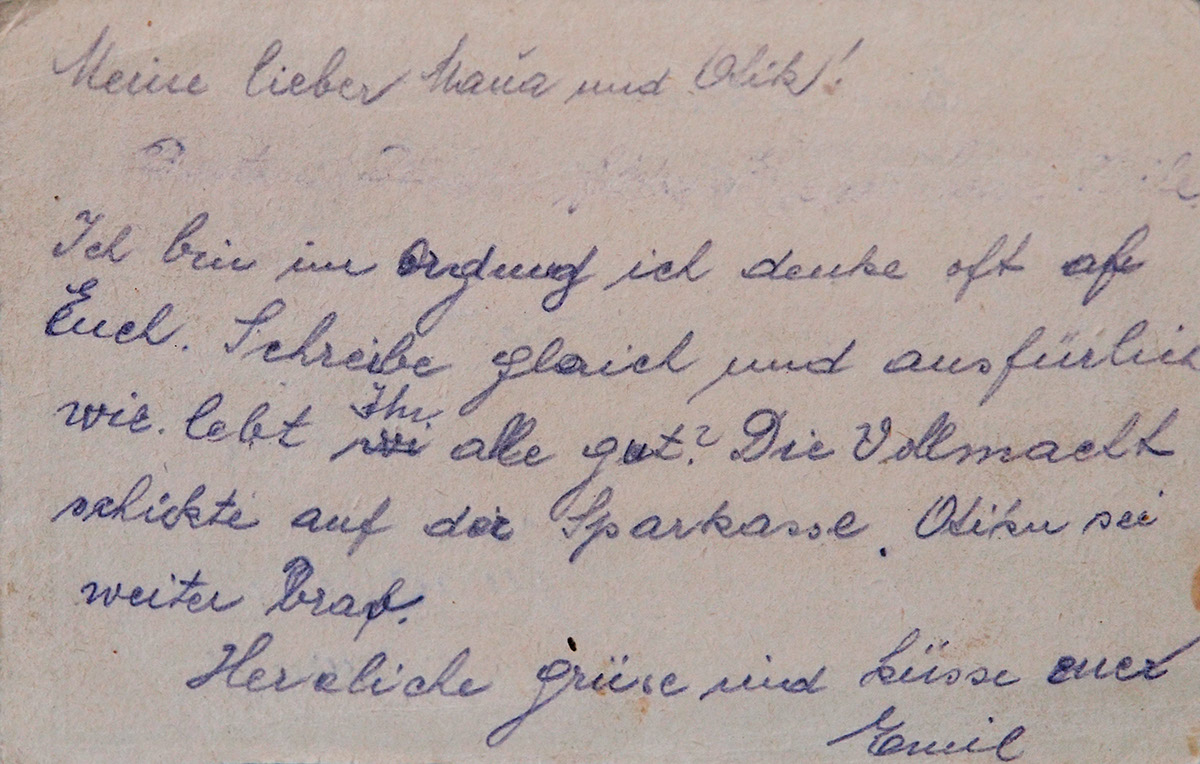 Meine lieber Maňa und Otik!
Ich bin im Ordnung ich denke oft af
Euch. Schreibe glaich und ausfürlich
wie. lebt Ihr alle gut? Die Vollmacht
schickte auf der Sparkasse. Otiku sei
weiter Braf.
Herzliche grüse und küsse euer
Emil